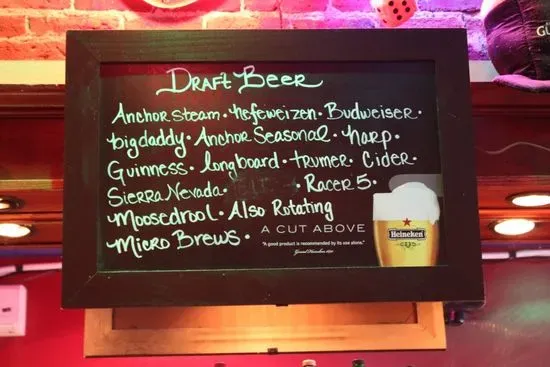 Draft Beer
Anchor Steam · Hefeweizen · Budweiser ·
bigdaddy · Anchor Seasonal · Harp ·
Guinness · longboard · trumer · Cider ·
Sierra Nevada · Racer 5 ·
Moosedrool · Also Rotating
Micro Brews ·
A CUT ABOVE
"A good product is recommended by its use alone."
Heineken
GU